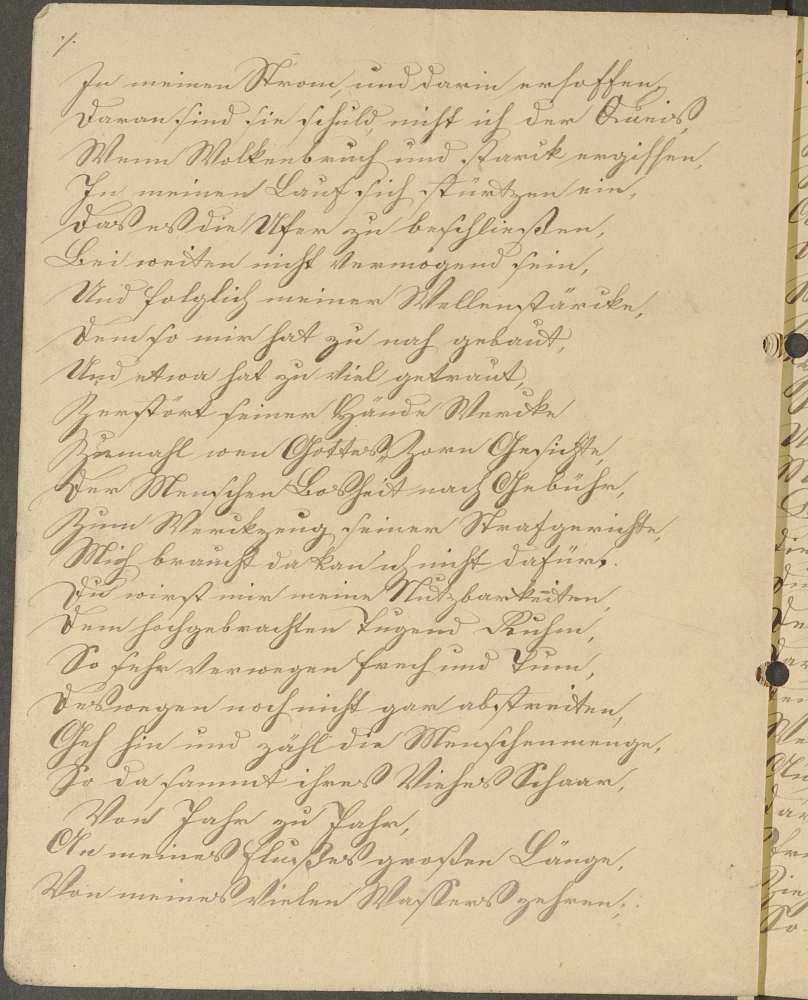 ./.
In meinen Strom, und darin ersoffen,
Daran sind sie schuld, nicht ich der Queis,
Wenn Wolkenbruch und starck ergissen,
In meinen Lauf sich stürtzen ein,
Das es die Ufer zu beschließen,
Bei weiten nicht vermogend sein,
Und folglich meiner Wellenstärcke,
Dem so mir hat zu nah gebaut,
Und etwa hat zu viel getraut,
Zerstört seiner Hände Wercke
Zumahl wen Gottes Zorn Gesichte,
Der Menschen Bosheit nach Gebühr,
Zum Werckzeug seiner Strafgerichte,
Mich braucht da kan ich nicht dafür.
Du wirst mir meine Nutzbarkeiten,
Dem hochgebrachten Tugend Ruhm,
So sehr verwegen frech und Tum,
Deswegen noch nicht gar abstreiten,
Geh hin und zähl die Menschenmenge,
So da sammt ihres Viehes Schaar,
Von Jahr zu Jahr,
An meines Flußes großen Länge,
Von meines vielen Wassers zehren;.